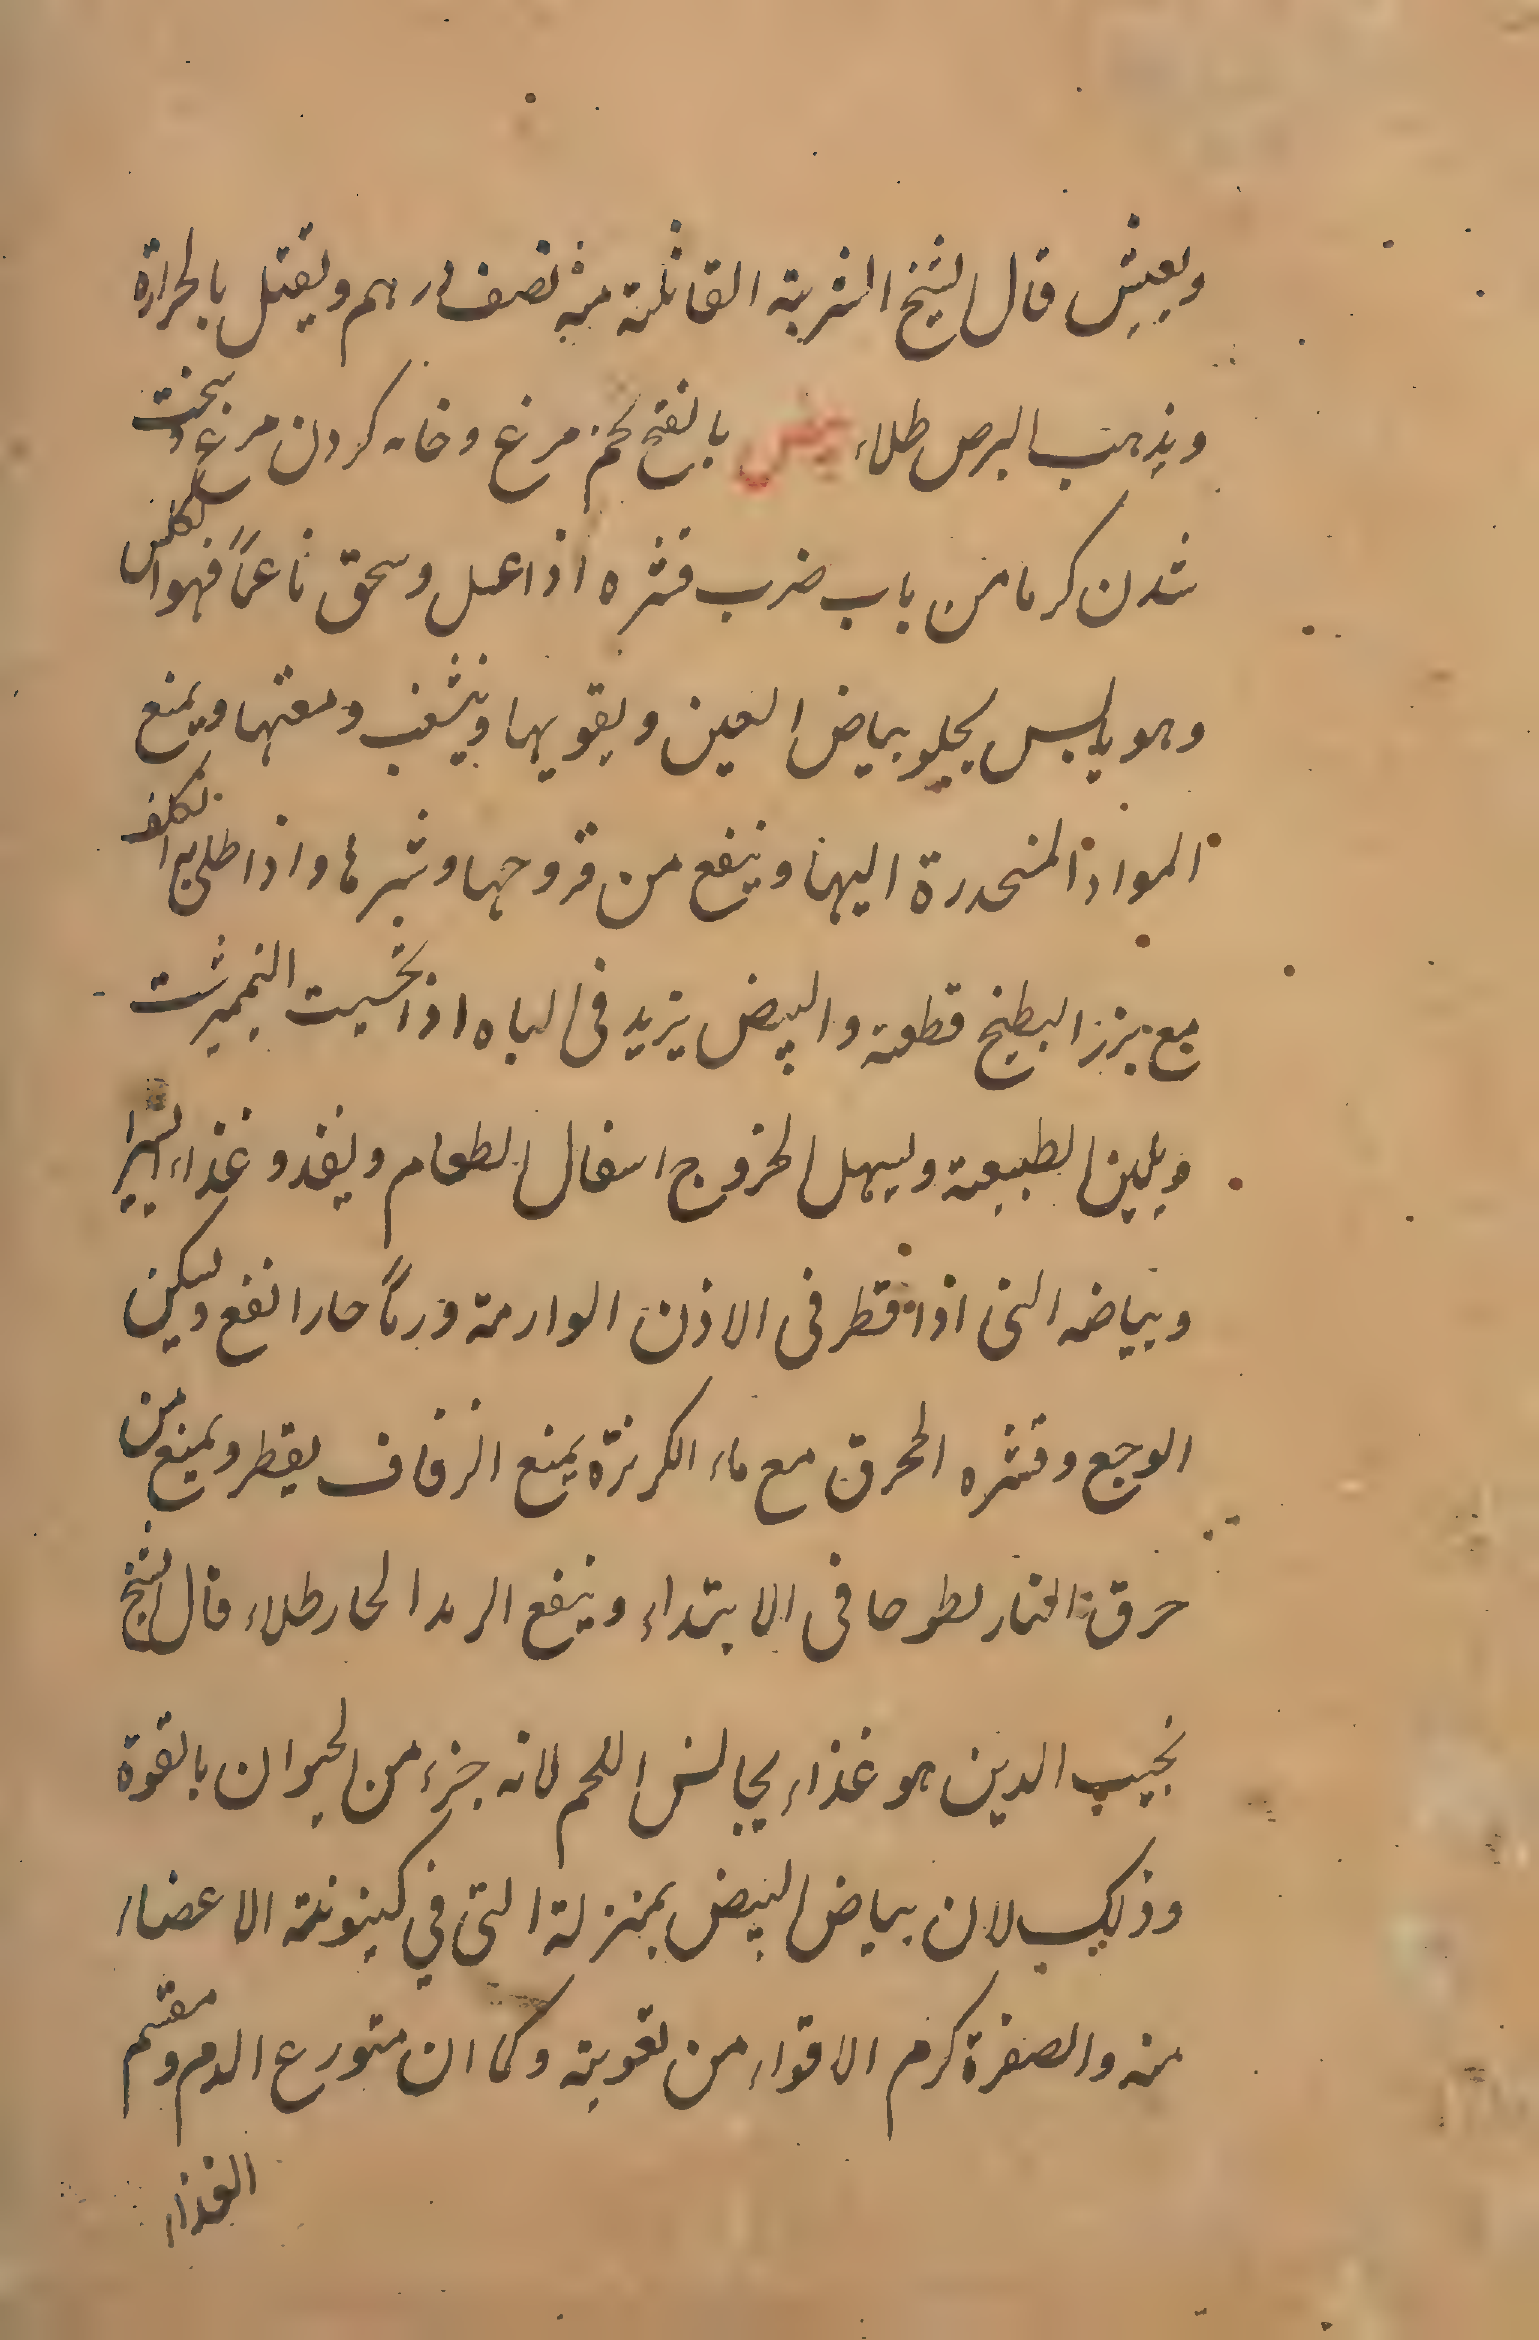 ويعيش قال الشيخ الشربة القاتلة منه نصف درهم ويقتل بالحرارة
ويذهب البرص طلاء بيض بالفتح تخم مرغ وخايه كردن مرغ وسخت
شدن كرما من باب ضرب قشره اذا عمل وسحق ناعماً فهو الكلس
وهو يابس يجلو بياض العين ويقويها وينشف دمعتها ويمنع
المواد المنحدرة اليها وينفع من قروحها وبثرها واذا طلى به الكلف
مع بزر البطيخ قطعه والبيض يزيد فى الباه اذا تحسيت النيمبرشت
ويلين الطبيعة ويسهل لخروج اسفال الطعام ويغذو غذاء يسيرا
وبياضه النى اذا قطر فى الاذن الوارمة ورماً حارا نفع وسكن
الوجع وقشره المحرق مع ماء الكزبرة يمنع الرعاف يقطر ويمنع من
حرق النار لطوخا فى الابتداء وينفع الرمد الحار طلاء قال الشيخ
نجيب الدين هو غذاء يجانس اللحم لانه جزء من الحيوان بالقوة
وذلك لان بياض البيض بمنزلة التى في كينونة الاعضاء
منه والصفرة كرم الاقواء من تقويته وكما ان متورع الدم ومقسم
الغذاء